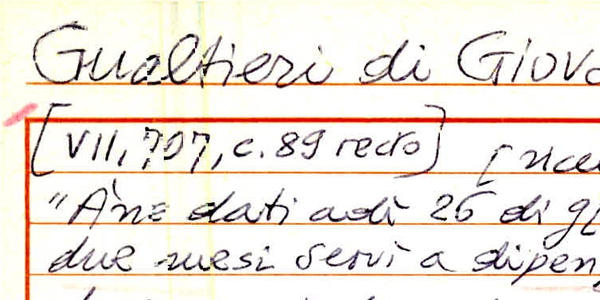 Gualtieri di Giova
[VII, 707, c. 89 recto] [rice
"Àne dati adì 26 di gi
due mesi servì a dipen